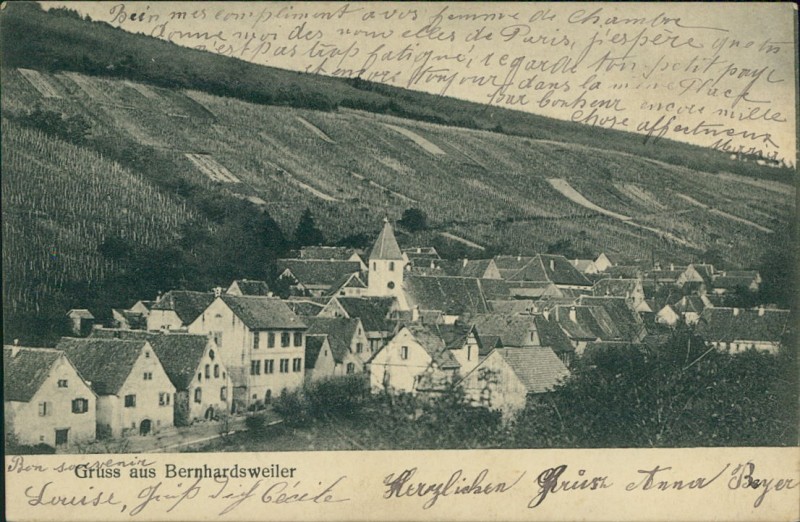 Bein mes compliment avos femme de Chambre
donne moi des nouvelles de Paris, j'espère que tu
n'est pas trop fatigué, regarde ton petit paye
encore toujour dans la
par bonheur encore mille
chose affectueux
Bon souvenir
Gruss aus Bernhardsweiler
Louise, Grüß Dich Cécile
Herzlichen Grüss Anna Beyer